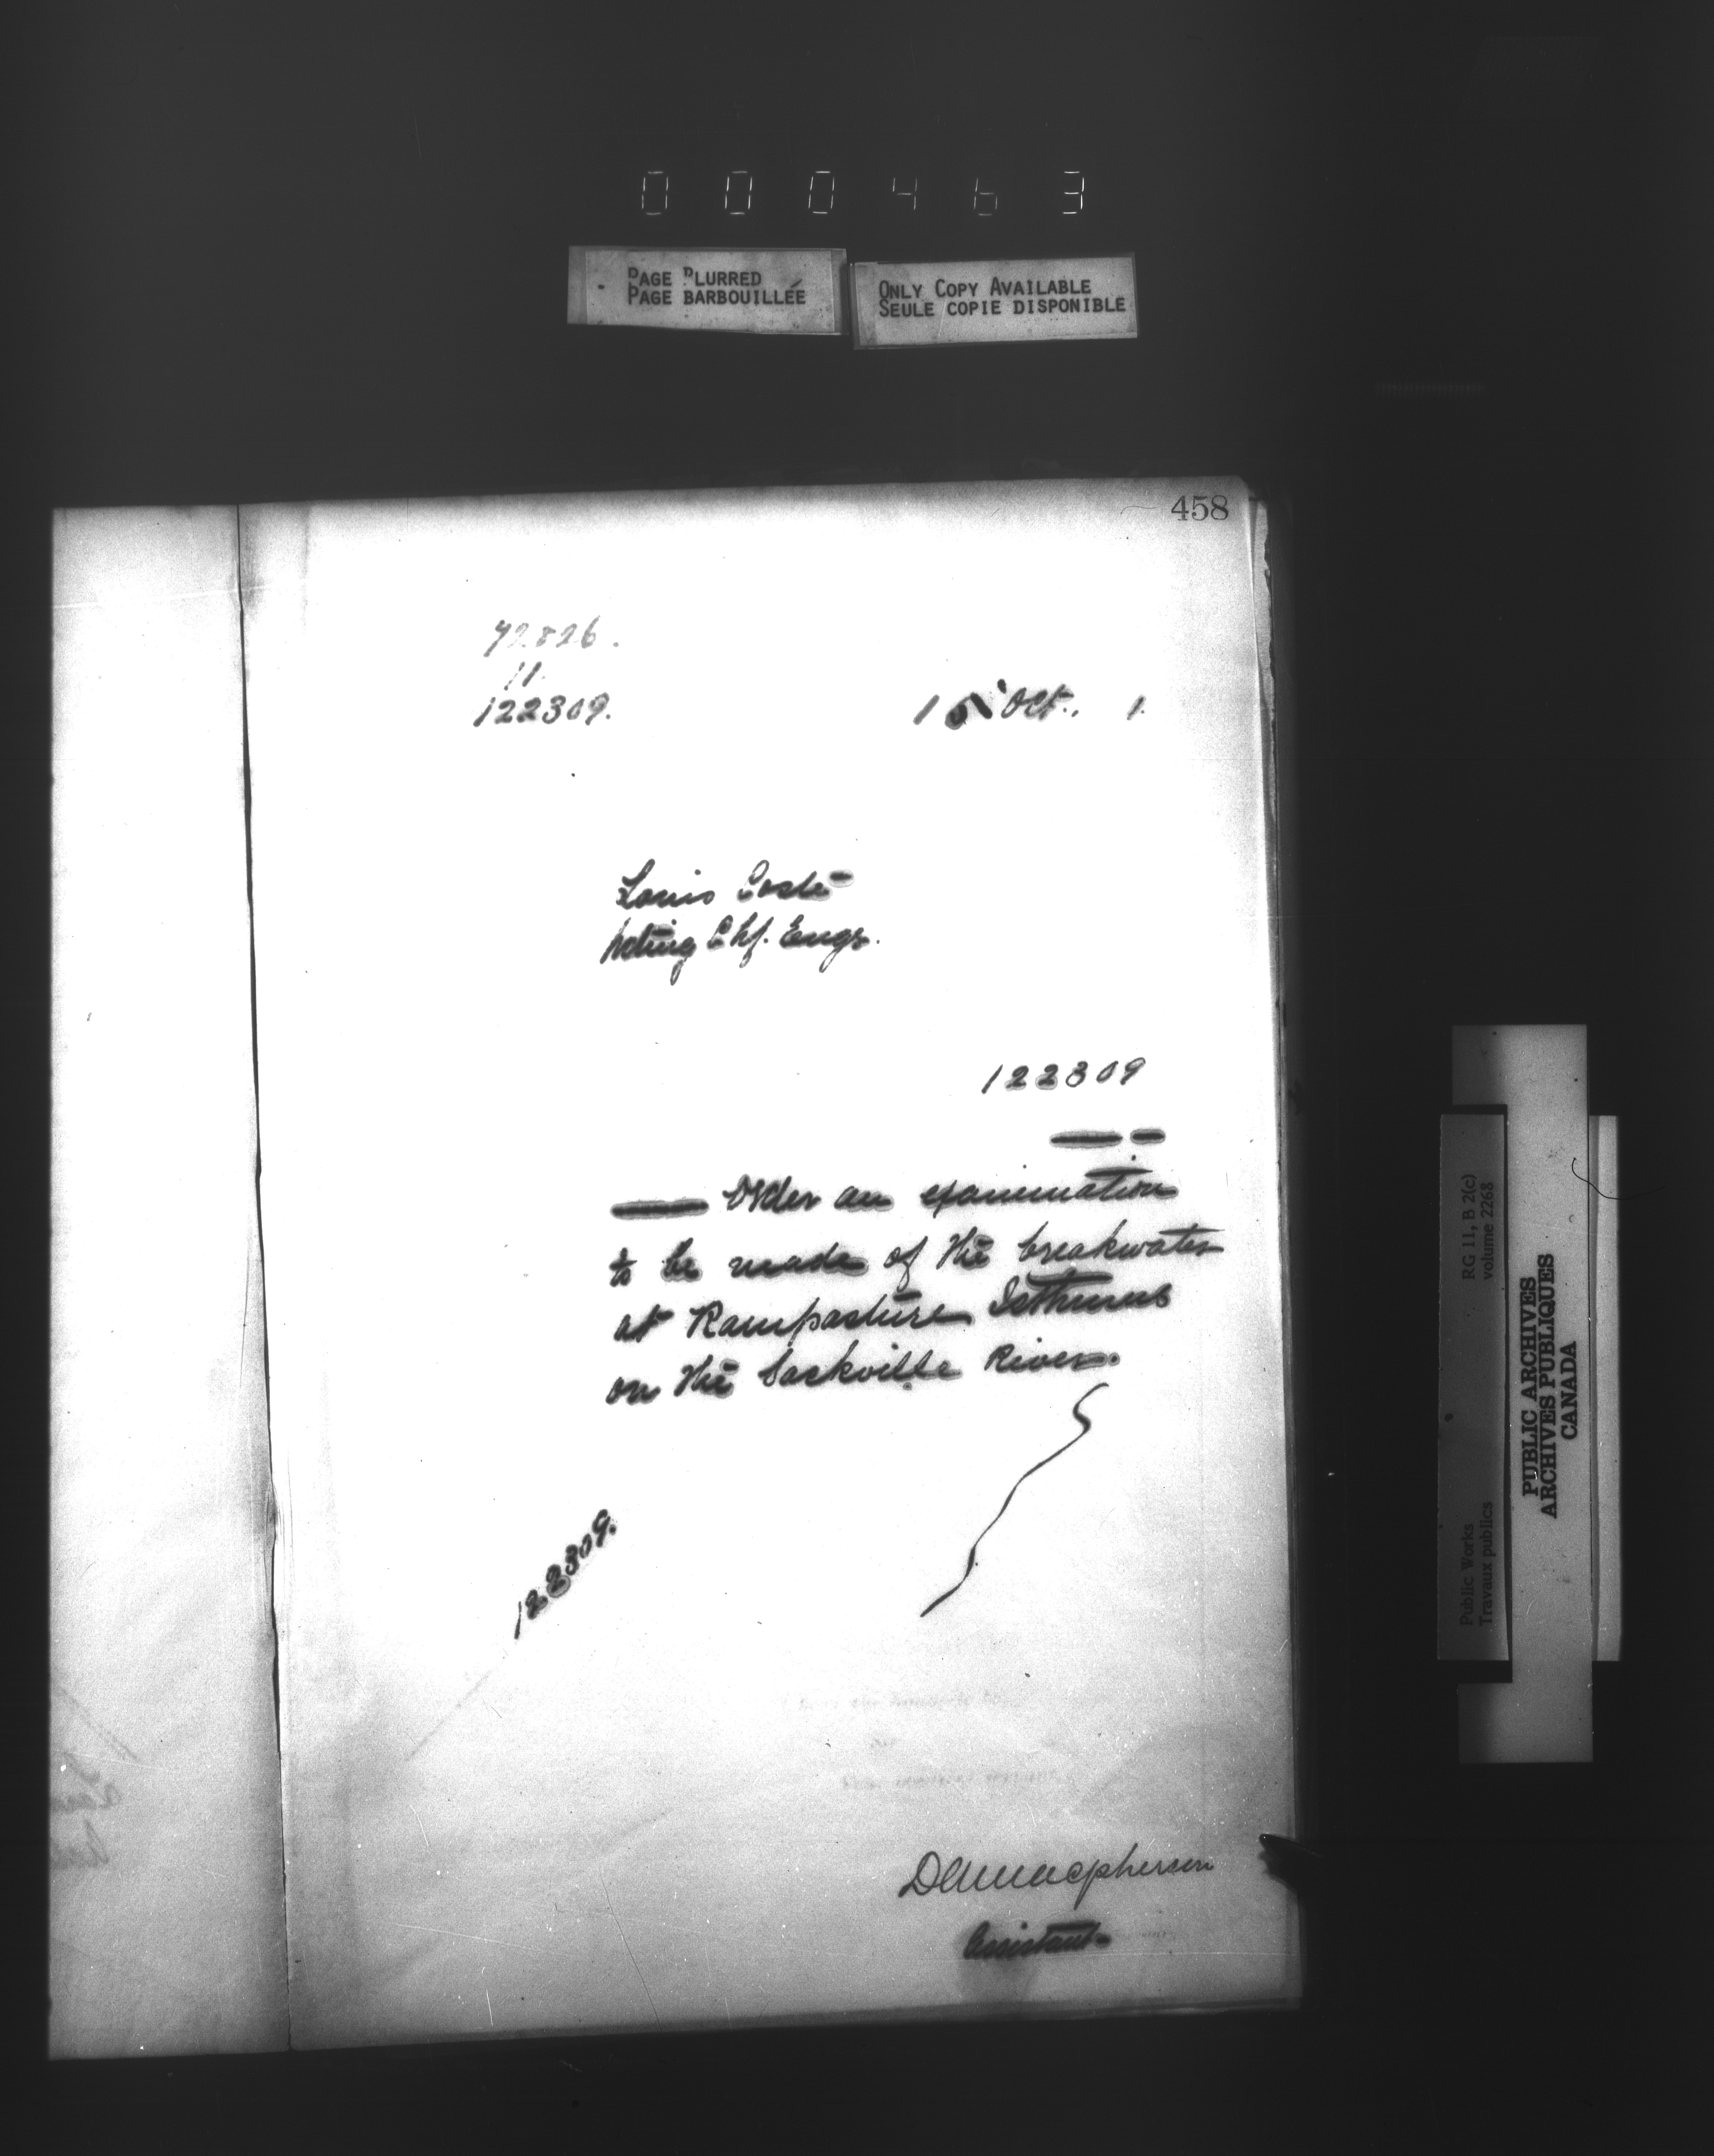 000463
PAGE BLURRED
PAGE BARBOUILLÉE
ONLY COPY AVAILABLE
SEULE COPIE DISPONIBLE
458
72826.
11.
122309.
15 Oct. 1.
Louis Coste
Acting Chf. Engr.
122309
Order an examination
to be made of the breakwater
at Rampasture Isthmus
on the Sackville River.
122309.
Macpherson
Assistant
RG 11, B 2(c)
volume 2268
Public Works
Travaux publics
PUBLIC ARCHIVES
ARCHIVES PUBLIQUES
CANADA